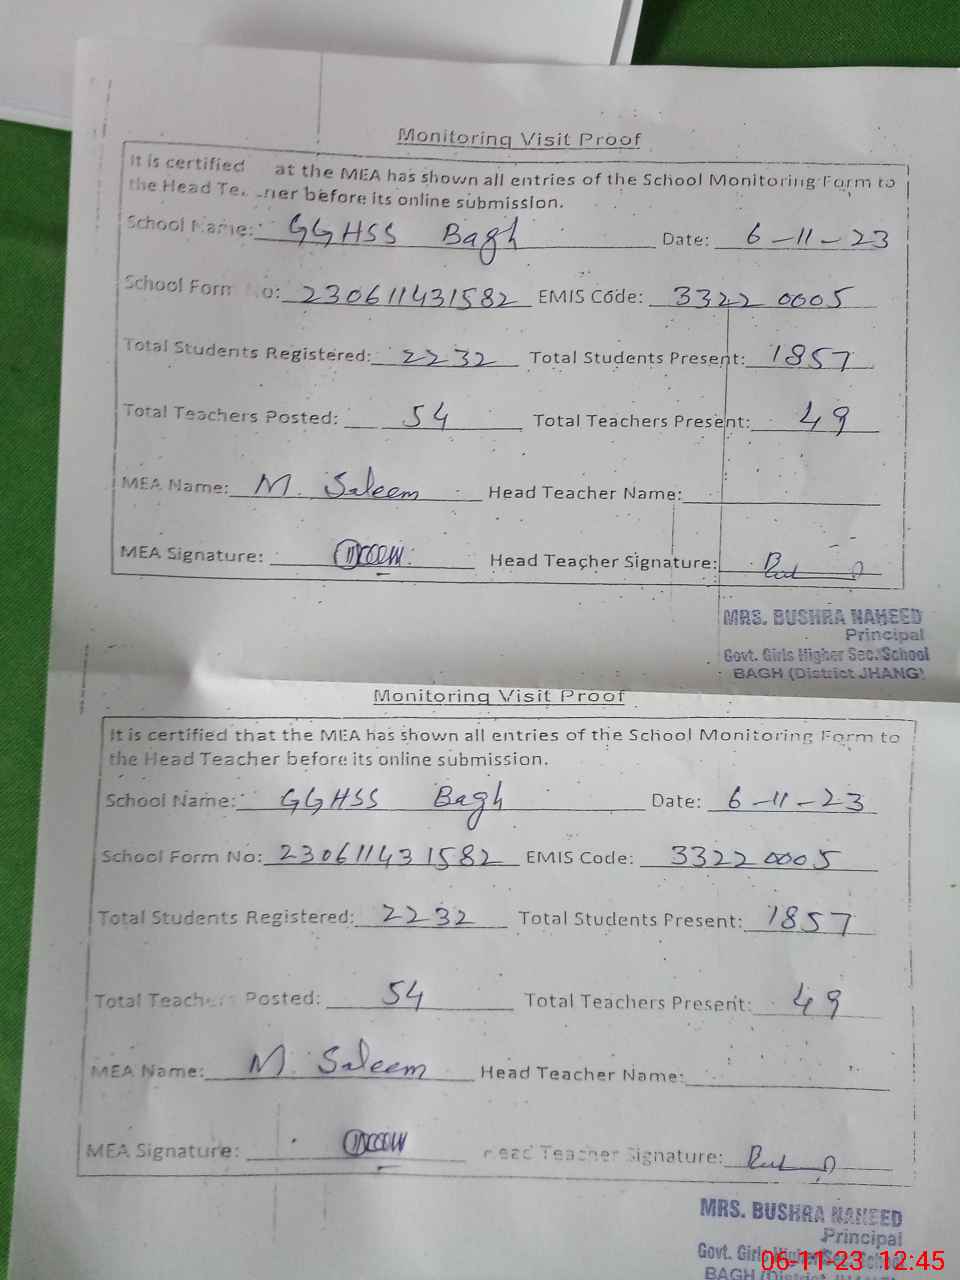 Monitoring Visit Proof
It is certified at the MEA has shown all entries of the School Monitoring Form to
the Head Te. .ner before its online submission.
School Name: GGHSS Bagh Date: 6-11-23
School Form No: 230611431582 EMIS Code: 33220005
Total Students Registered: 2232 Total Students Present: 1857
Total Teachers Posted: 54 Total Teachers Present: 49
MEA Name: M. Saleem Head Teacher Name:
MEA Signature: Head Teacher Signature:
MRS. BUSHRA NAHEED
Principal
Govt. Girls Higher Sec. School
BAGH (District JHANG)
Monitoring Visit Proof
It is certified that the MEA has shown all entries of the School Monitoring Form to
the Head Teacher before its online submission.
School Name: GGHSS Bagh Date: 6-11-23
School Form No: 230611431582 EMIS Code: 33220005
Total Students Registered: 2232 Total Students Present: 1857
Total Teachers Posted: 54 Total Teachers Present: 49
MEA Name: M. Saleem Head Teacher Name:
MEA Signature: Head Teacher Signature:
MRS. BUSHRA NAHEED
Principal
Govt. Girls Higher Sec. School
BAGH (District JHANG
06-11-23 12:45